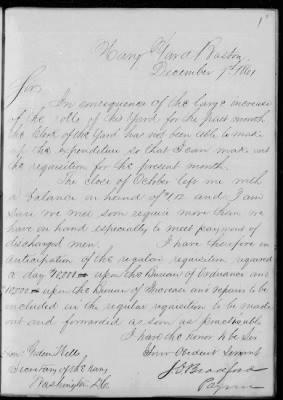 1
Navy Yard Boston
December 1st 1861
Sir,
In consequence of the large increase
of the rolls of this Yard for the past month
the Clerk of the Yard has not been able to make
up the expenditure so that I can make out
the requisition for the present month.
The close of October left me with
a balance on hand of and I am
sure we will soon require more than we
have on hand especially to meet payment of
discharged men. I have therefore in
anticipation of the regular requisition required
a day upon the Bureau of Ordnance and
upon the Bureau of and repairs to be
included in the regular requisition to be made
out and forwarded as soon as practicable
I have the honor to be Sir
Your Obedient Servant
Hon: Gideon Welles J S Bradford
Secretary of the Navy
Washington D.C.